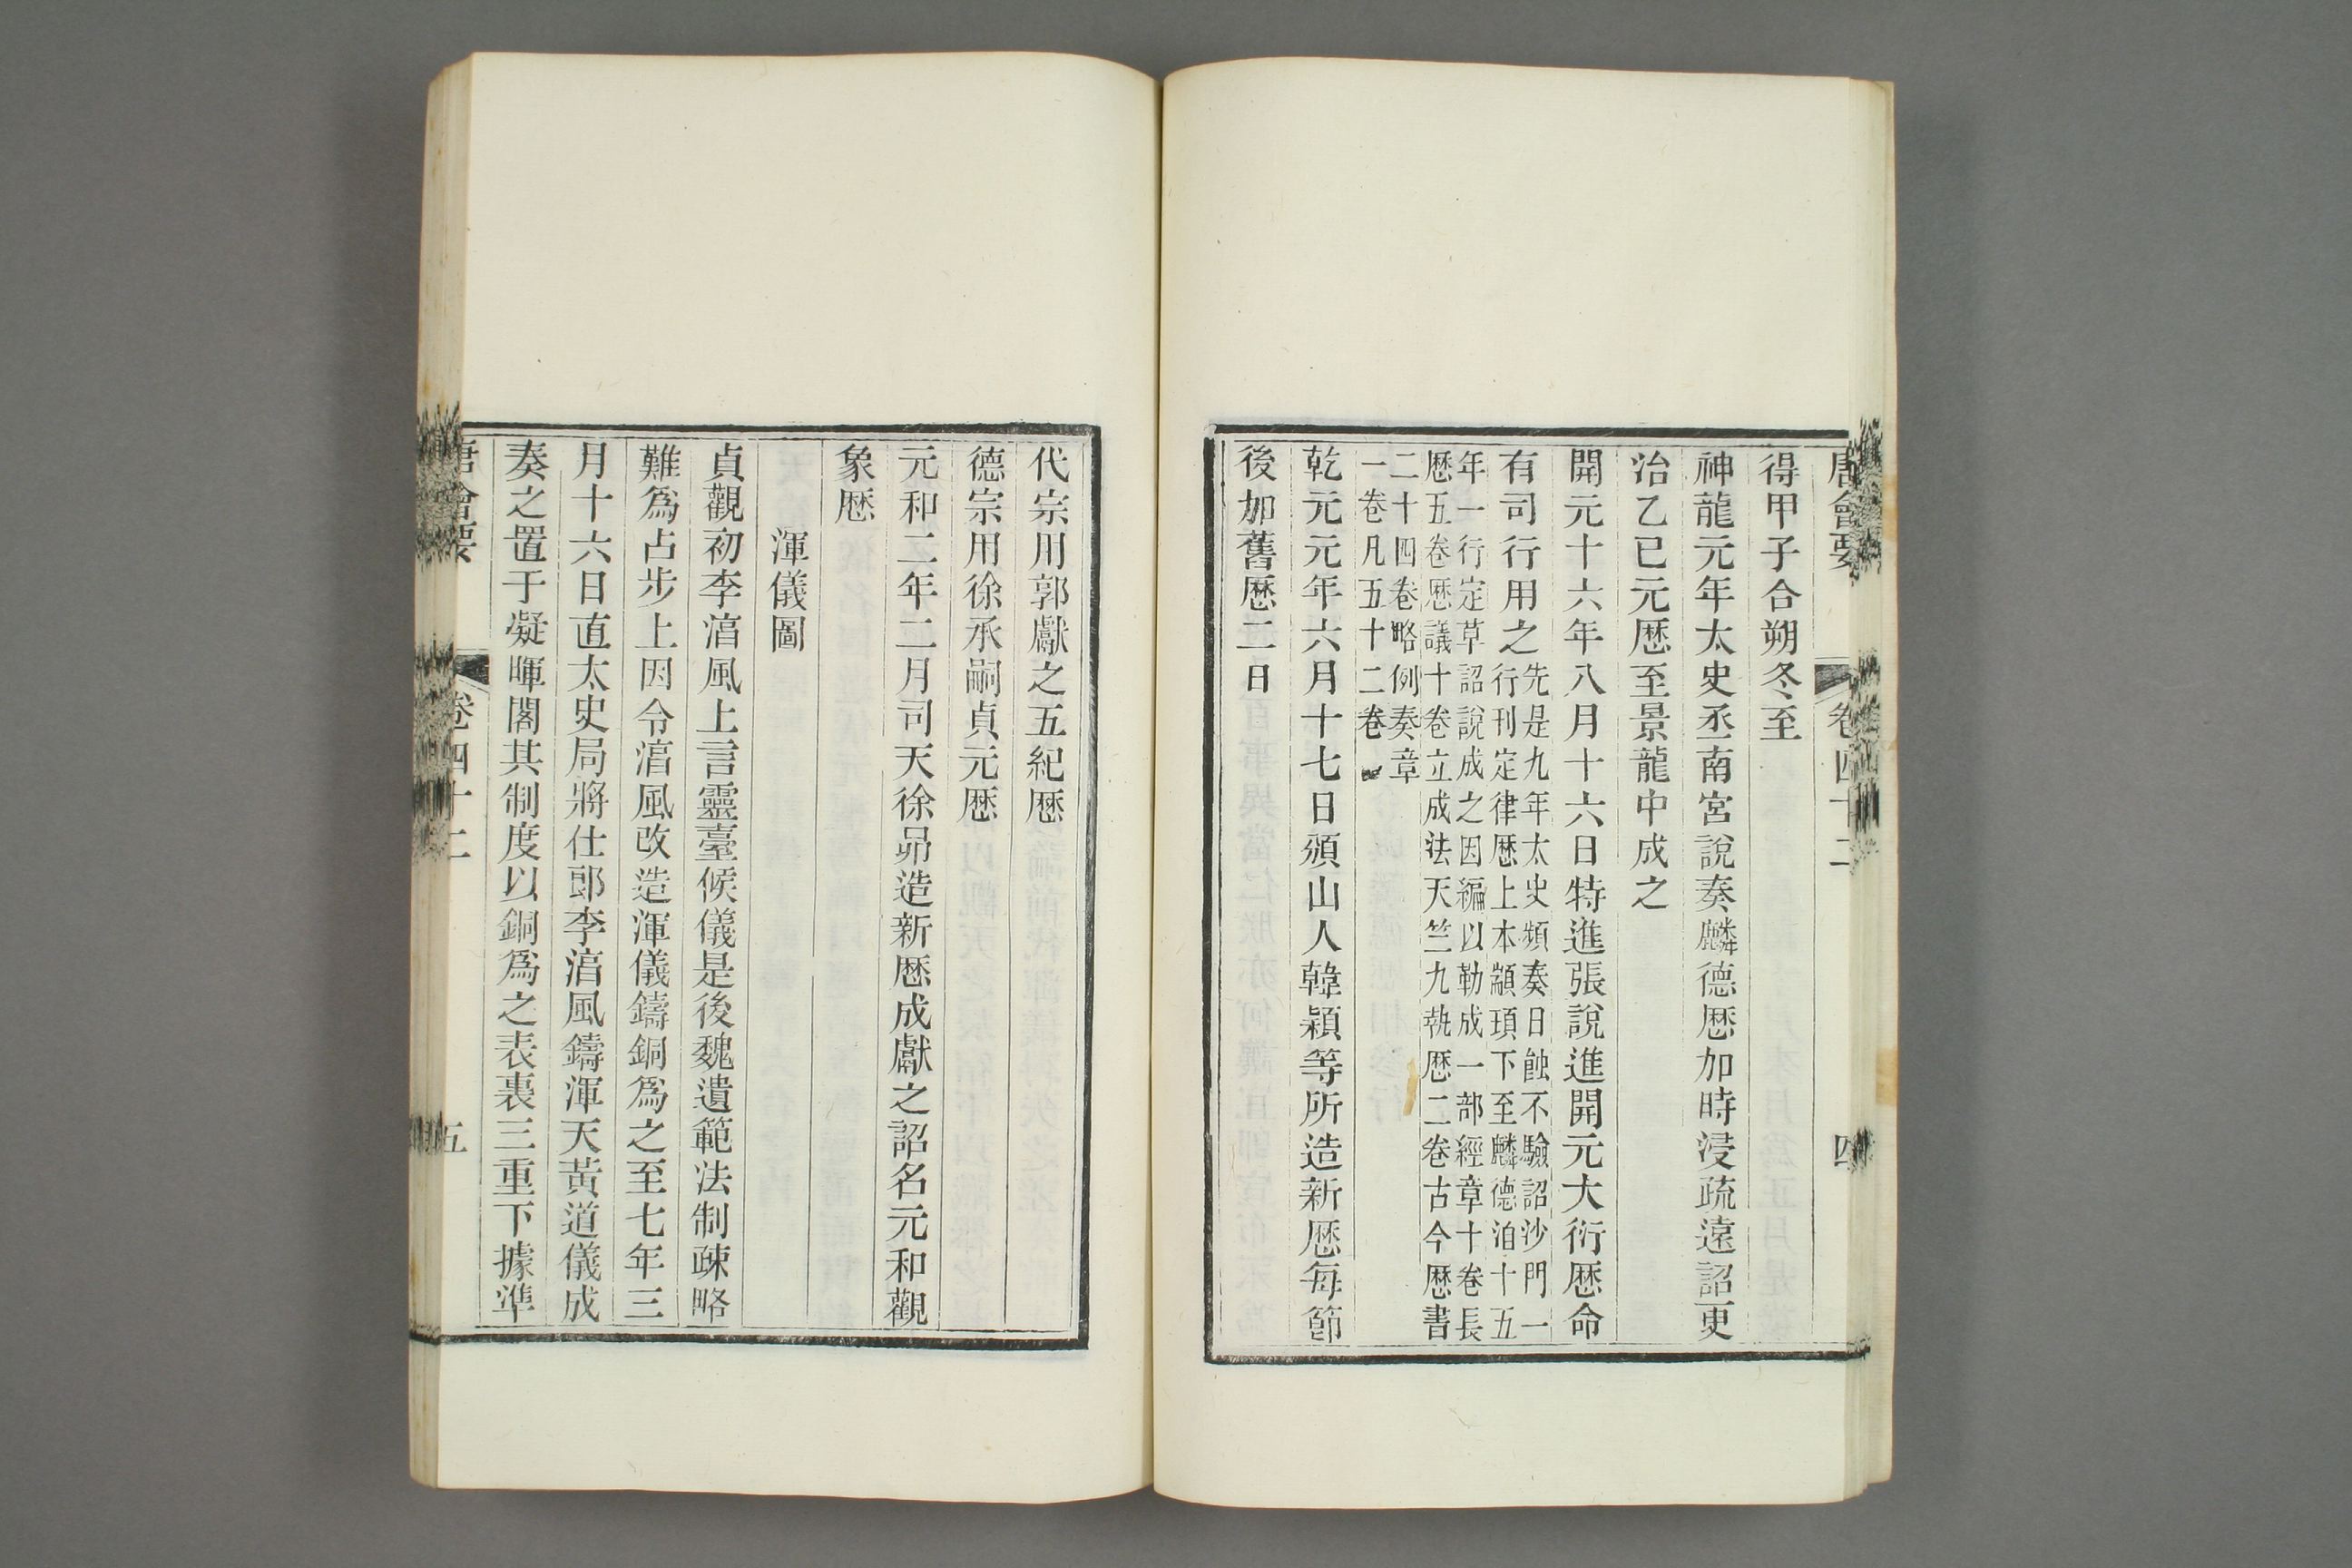 唐會要 卷四十二 四
得甲子合朔冬至
神龍元年太史丞南宮說奏麟德厯加時浸疏遠詔更
治乙巳元厯至景龍中成之
開元十六年八月十六日特進張說進開元大衍厯命
有司行用之
先是九年太史頻奏日蝕不驗詔沙門一
行刊定律厯上本顓頊下至麟德洎十五
年一行定草詔說成之因編以勒成一部經章十卷長
厯五卷厯議十卷立成法天竺九執厯二卷古今厯書
二十四卷略例奏章
一卷凡五十二卷
乾元元年六月十七日頒山人韓穎等所造新厯每節
後加舊厯二日
代宗用郭獻之五紀厯
德宗用徐承嗣貞元厯
元和二年二月司天徐昻造新厯成獻之詔名元和觀
象厯
渾儀圖
貞觀初李湻風上言靈臺候儀是後魏遺範法制疎略
難爲占步上因令湻風改造渾儀鑄銅爲之至七年三
月十六日直太史局將仕郎李湻風鑄渾天黃道儀成
奏之置于凝暉閣其制度以銅爲之表裏三重下據準
唐會要 卷四十二 五